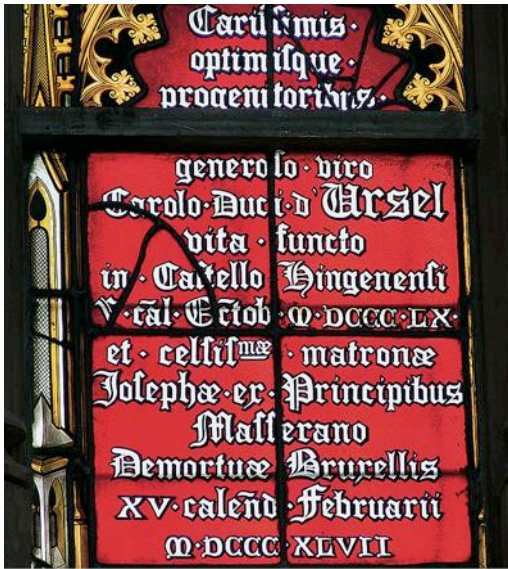 Carissimis ·
optimisque ·
progenitoribus ·
generoso · viro
Carolo · Duci · d' Ursel
vita · functo
in · Castello Hingenensi
V · cāl · Octob · M · DCCC · LX ·
et · celsisᵐᵃᵉ · matronæ
Josephæ · ex · Principibus
Masserano
Demortuæ Bruxellis
XV · caleñd · Februarii
M · DCCC · XLVII